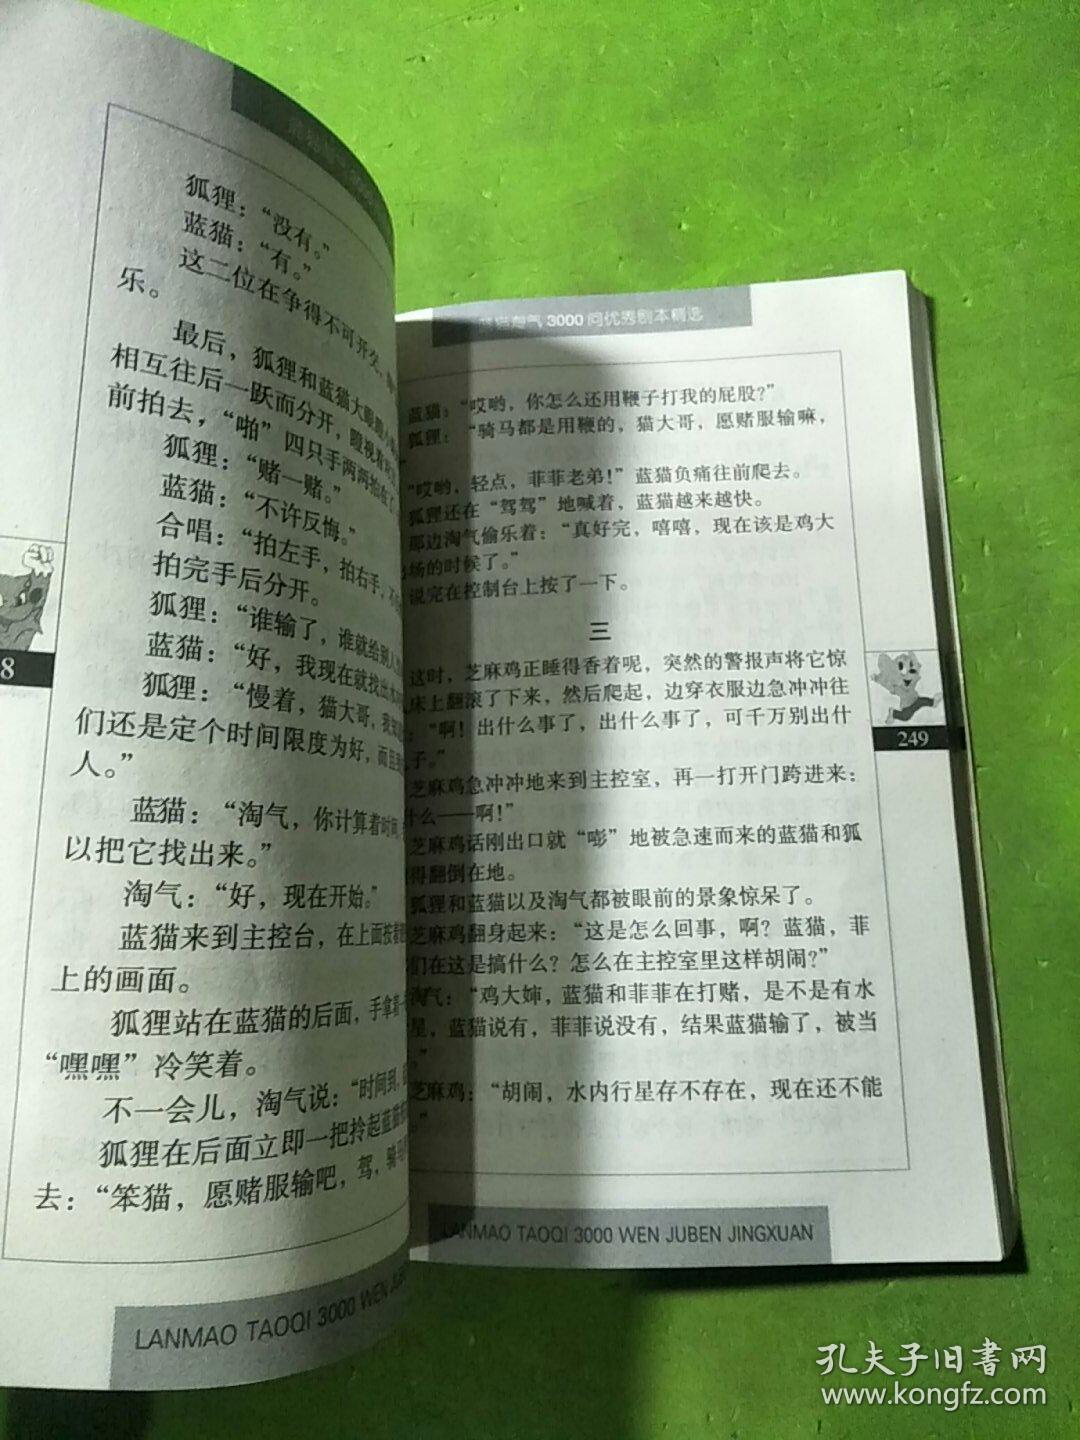 狐狸：“没有。”
蓝猫：“有。”
这二位在争得不可开交，
乐。
最后，狐狸和蓝猫大眼瞪小
相互往后一跃而分开，瞪视着
前拍去，“啪”四只手两两拍在
狐狸：“赌一赌。”
蓝猫：“不许反悔。”
合唱：“拍左手，拍右手，
拍完手后分开。
狐狸：“谁输了，谁就给别人
蓝猫：“好，我现在就找出
狐狸：“慢着，猫大哥，我
们还是定个时间限度为好，而且
人。”
蓝猫：“淘气，你计算着时间，
以把它找出来。”
淘气：“好，现在开始。”
蓝猫来到主控台，在上面按着
上的画面。
狐狸站在蓝猫的后面，手拿着一
“嘿嘿”冷笑着。
不一会儿，淘气说：“时间到，
狐狸在后面立即一把拎起蓝猫
去：“笨猫，愿赌服输吧，驾，骑马
8
LANMAO TAOQI 3000 WEN JUBE
淘气 3000 问优秀剧本精选
蓝猫：“哎哟，你怎么还用鞭子打我的屁股？”
狐狸：“骑马都是用鞭的，猫大哥，愿赌服输嘛，
”
“哎哟，轻点，菲菲老弟！”蓝猫负痛往前爬去。
狐狸还在“驾驾”地喊着，蓝猫越来越快。
那边淘气偷乐着：“真好完，嘻嘻，现在该是鸡大
场的时候了。”
说完在控制台上按了一下。
三
这时，芝麻鸡正睡得香着呢，突然的警报声将它惊
床上翻滚了下来，然后爬起，边穿衣服边急冲冲往
：“啊！出什么事了，出什么事了，可千万别出什
子。”
芝麻鸡急冲冲地来到主控室，再一打开门跨进来：
什么——啊！”
芝麻鸡话刚出口就“嘭”地被急速而来的蓝猫和狐
得翻倒在地。
狐狸和蓝猫以及淘气都被眼前的景象惊呆了。
芝麻鸡翻身起来：“这是怎么回事，啊？蓝猫，菲
们在这是搞什么？怎么在主控室里这样胡闹？”
淘气：“鸡大婶，蓝猫和菲菲在打赌，是不是有水
星，蓝猫说有，菲菲说没有，结果蓝猫输了，被当
”
芝麻鸡：“胡闹，水内行星存不存在，现在还不能
。”
249
LANMAO TAOQI 3000 WEN JUBEN JINGXUAN
孔夫子旧書网
www.kongfz.com